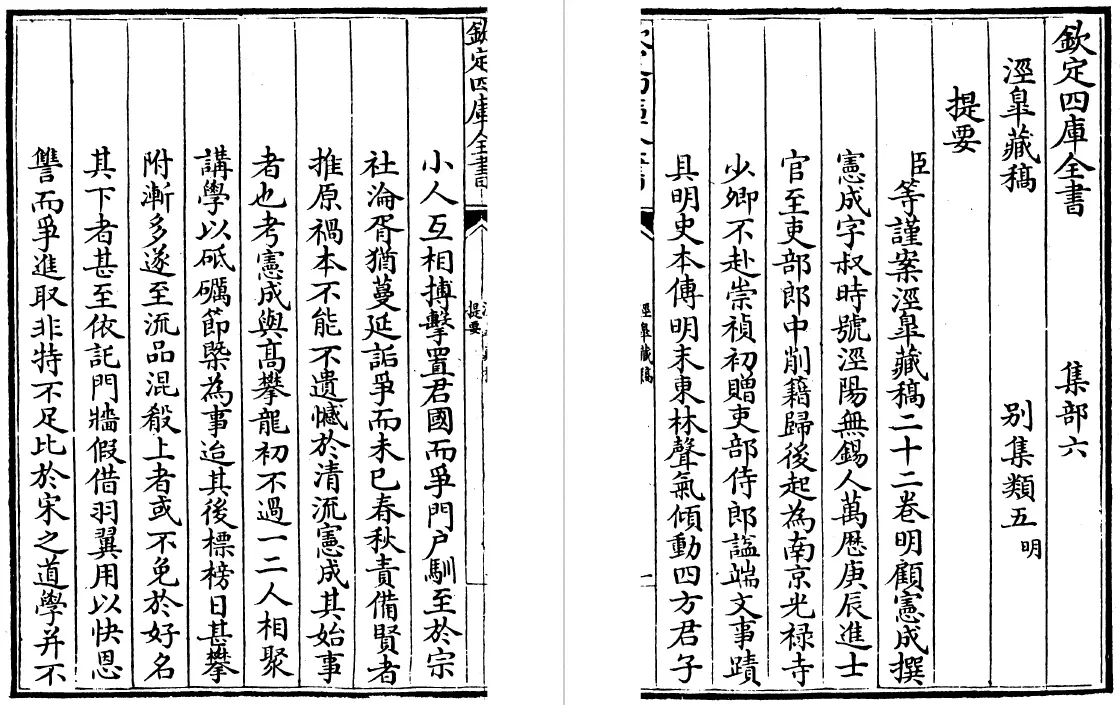 欽定四庫全書 集部六
涇臯藏稿 别集類五明
提要
臣等謹案涇臯藏稿二十二卷明顧憲成撰
憲成字叔時號涇陽無錫人萬厯庚辰進士
官至吏部郎中削籍歸後起為南京光禄寺
少卿不赴崇禎初贈吏部侍郎諡端文事蹟
具明史本傳明末東林聲氣傾動四方君子
涇臯藏稿
欽定四庫全書
提要
小人互相搏擊置君國而爭門户馴至於宗
社淪胥猶蔓延詬爭而未已春秋責備賢者
推原禍本不能不遺憾於清流憲成其始事
者也考憲成與高攀龍初不過一二人相聚
講學以砥礪節槩為事迨其後標榜日甚攀
附漸多遂至流品混殽上者或不免於好名
其下者甚至依託門牆假借羽翼用以快恩
讐而爭進取非特不足比於宋之道學并不